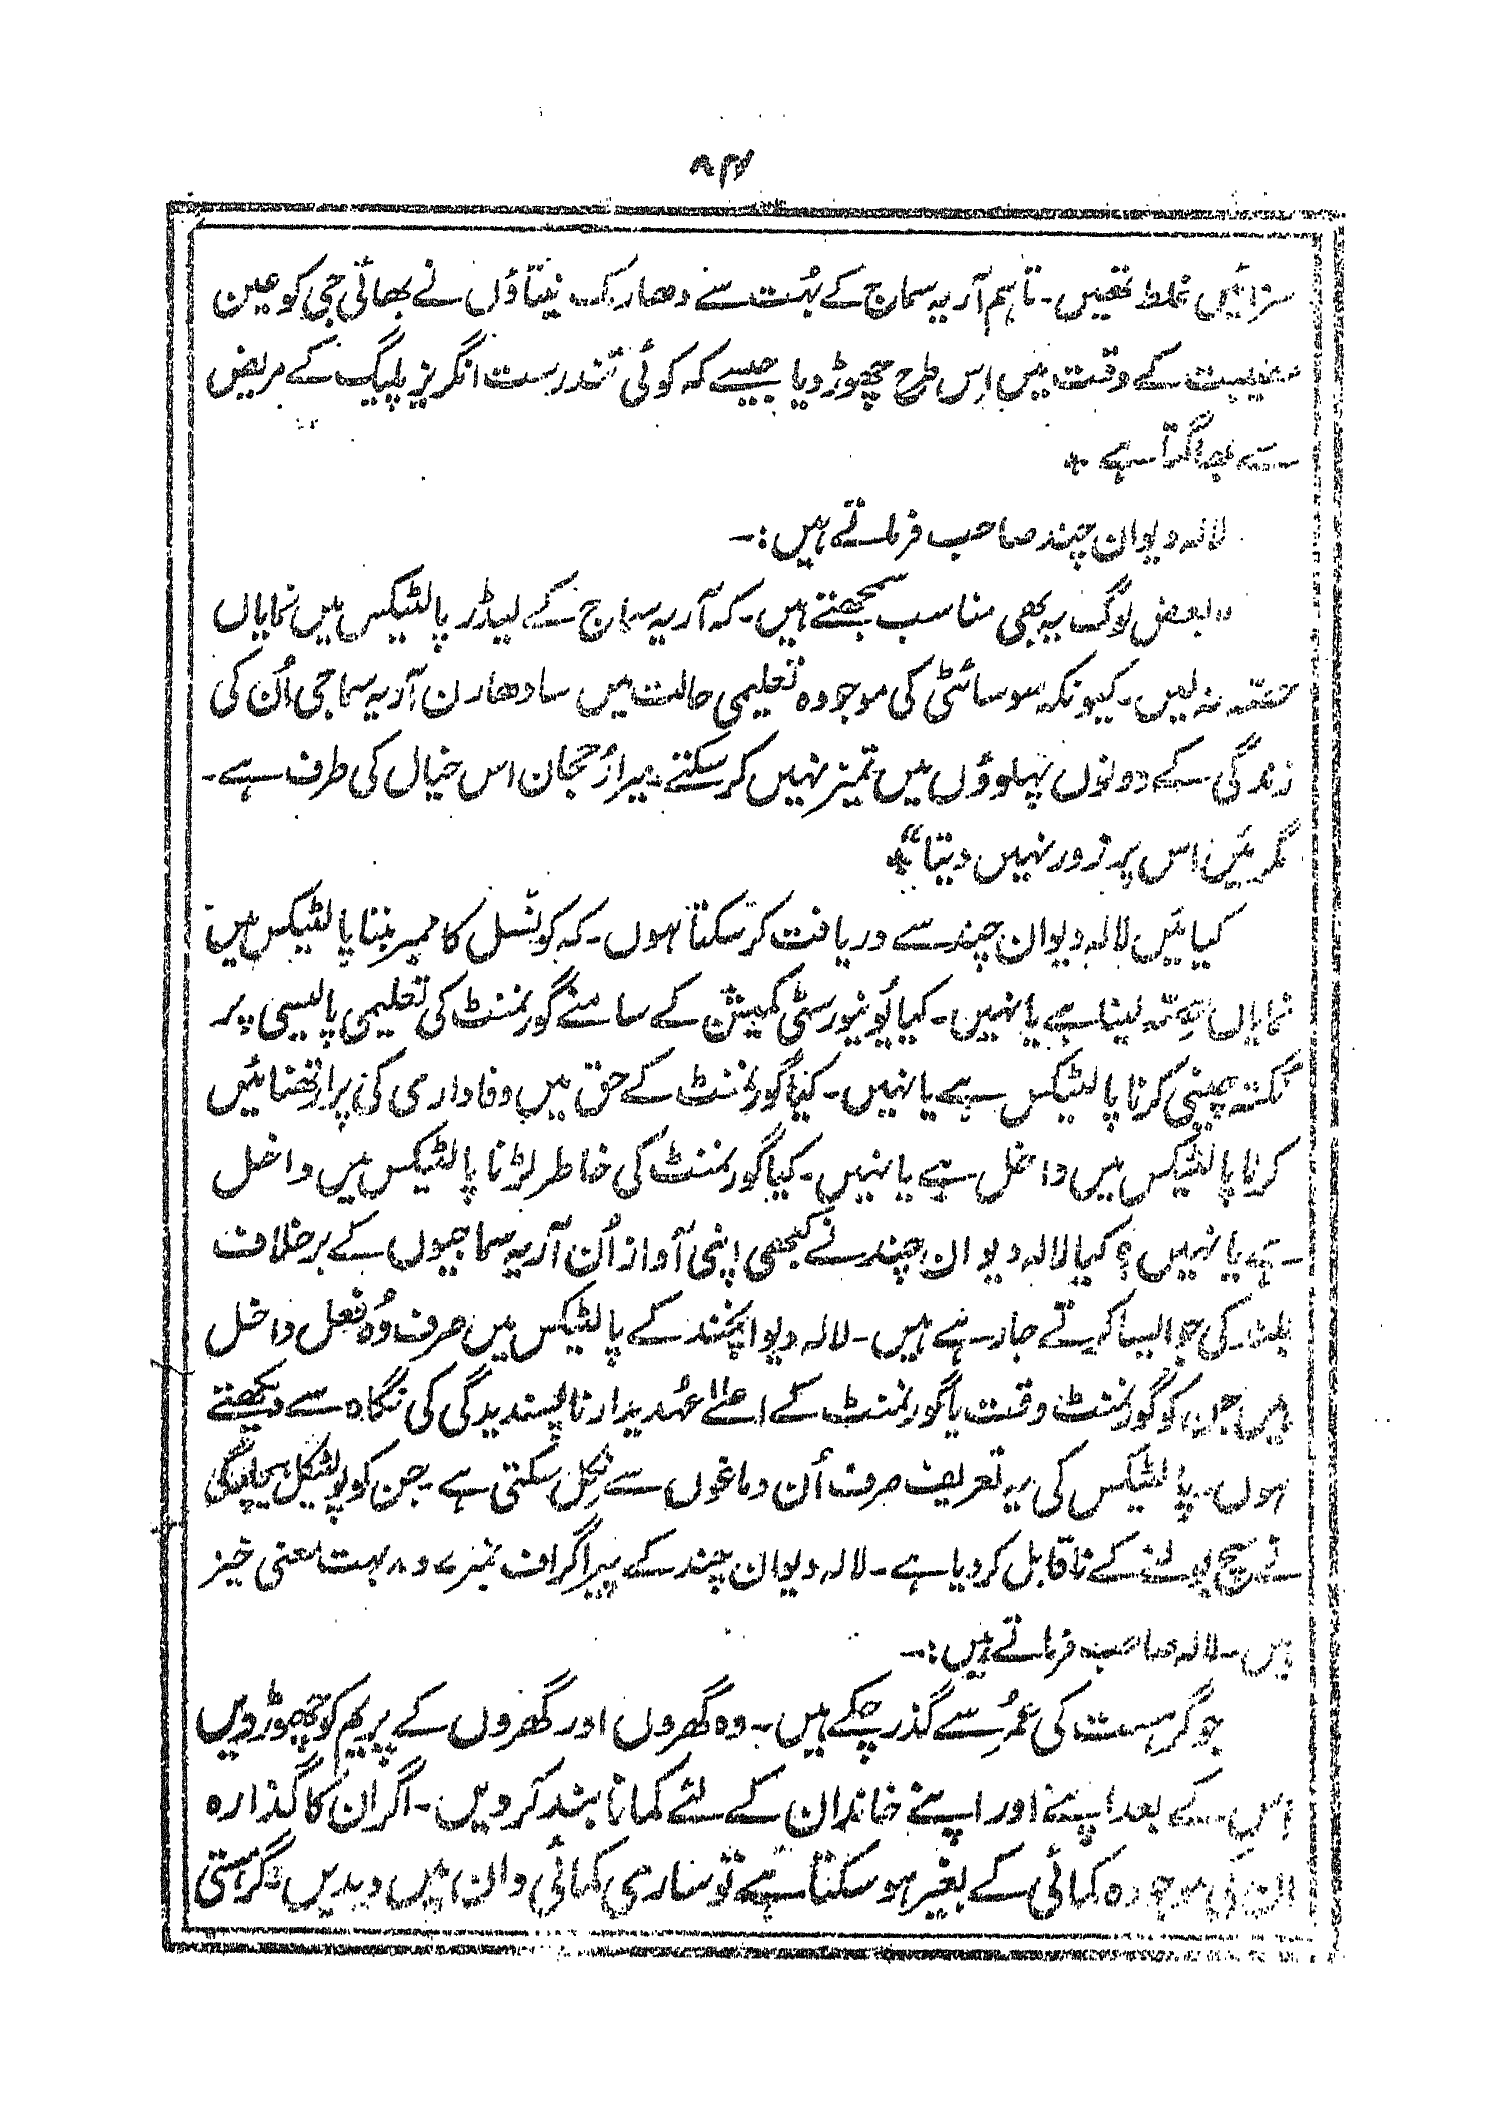 ۸۴
سزائیں غلط تھیں۔ تاہم آریہ سماج کے بہُت سے دھارمک نیتاؤں نے بھائی جی کو عین
مصیبت کے وقت میں اِس طرح چھوڑ دیا جیسے کہ کوئی تندرست انگریز پلیگ کے مریض
سے بھاگتا ہے +
لالہ دیوان چند صاحب فرماتے ہیں:۔
"بعض لوگ یہ بھی مناسب سمجھتے ہیں۔ کہ آریہ سماج کے لیڈر پالٹیکس میں نمایاں
حصّہ نہ لیں۔ کیونکہ سوسائٹی کی موجودہ تعلیمی حالت میں سادھارن آریہ سماجی اُن کی
زندگی کے دونوں پہلوؤں میں تمیز نہیں کر سکتے۔ میرا رُحجان اس خیال کی طرف ہے۔
مگر مَیں اس پر زور نہیں دیتا"+
کیا مَیں لالہ دیوان چند سے دریافت کر سکتا ہوں۔ کہ کونسل کا ممبر بننا پالٹیکس میں
نمایاں حِصّہ لینا ہے یا نہیں۔ کیا یُونیورسٹی کمیشن کے سامنے گورنمنٹ کی تعلیمی پالیسی پر
نکتہ چینی کرنا پالٹیکس ہے یا نہیں۔ کیا گورنمنٹ کے حق میں وفاداری کی پرارتھنائیں
کرنا پالٹیکس میں داخل ہے یا نہیں۔ کیا گورنمنٹ کی خاطر لڑنا پالٹیکس میں داخل
ہے یا نہیں؟ کیا لالہ دیوان چند نے کبھی اپنی آواز اُن آریہ سماجیوں کے برخلاف
بلند کی جو ایسا کرتے جا رہے ہیں۔ لالہ دیوانچند کے پالٹیکس میں صرف وُہ فعل داخل
ہیں جن کو گورنمنٹ وقت یا گورنمنٹ کے اعلےٰ عُہدیدار ناپسندیدگی کی نگاہ سے دیکھتے
ہوں۔ پالٹیکس کی یہ تعریف صرف اُن دماغوں سے نِکل سکتی ہے۔ جن کو پولٹیکل
نے سچ بولنے کے ناقابل کر دیا ہے۔ لالہ دیوان چند کے پیراگراف نمبر ۷ و ۸ بہت معنی خیز
ہیں۔ لالہ صاحب فرماتے ہیں:۔
جو گرہست کی عمرُ سے گذر چکے ہیں۔ وہ گھروں اور گھروں کے پریم کو چھوڑ دیں
اِس کے بعد اپنے اور اپنے خاندان کے لئے کمانا بند کر دیں۔ اگر ان کا گذارہ
ان کی موجودہ کمائی کے بغیر ہو سکتا ہے تو ساری کمائی دان میں دیدیں گرہستی